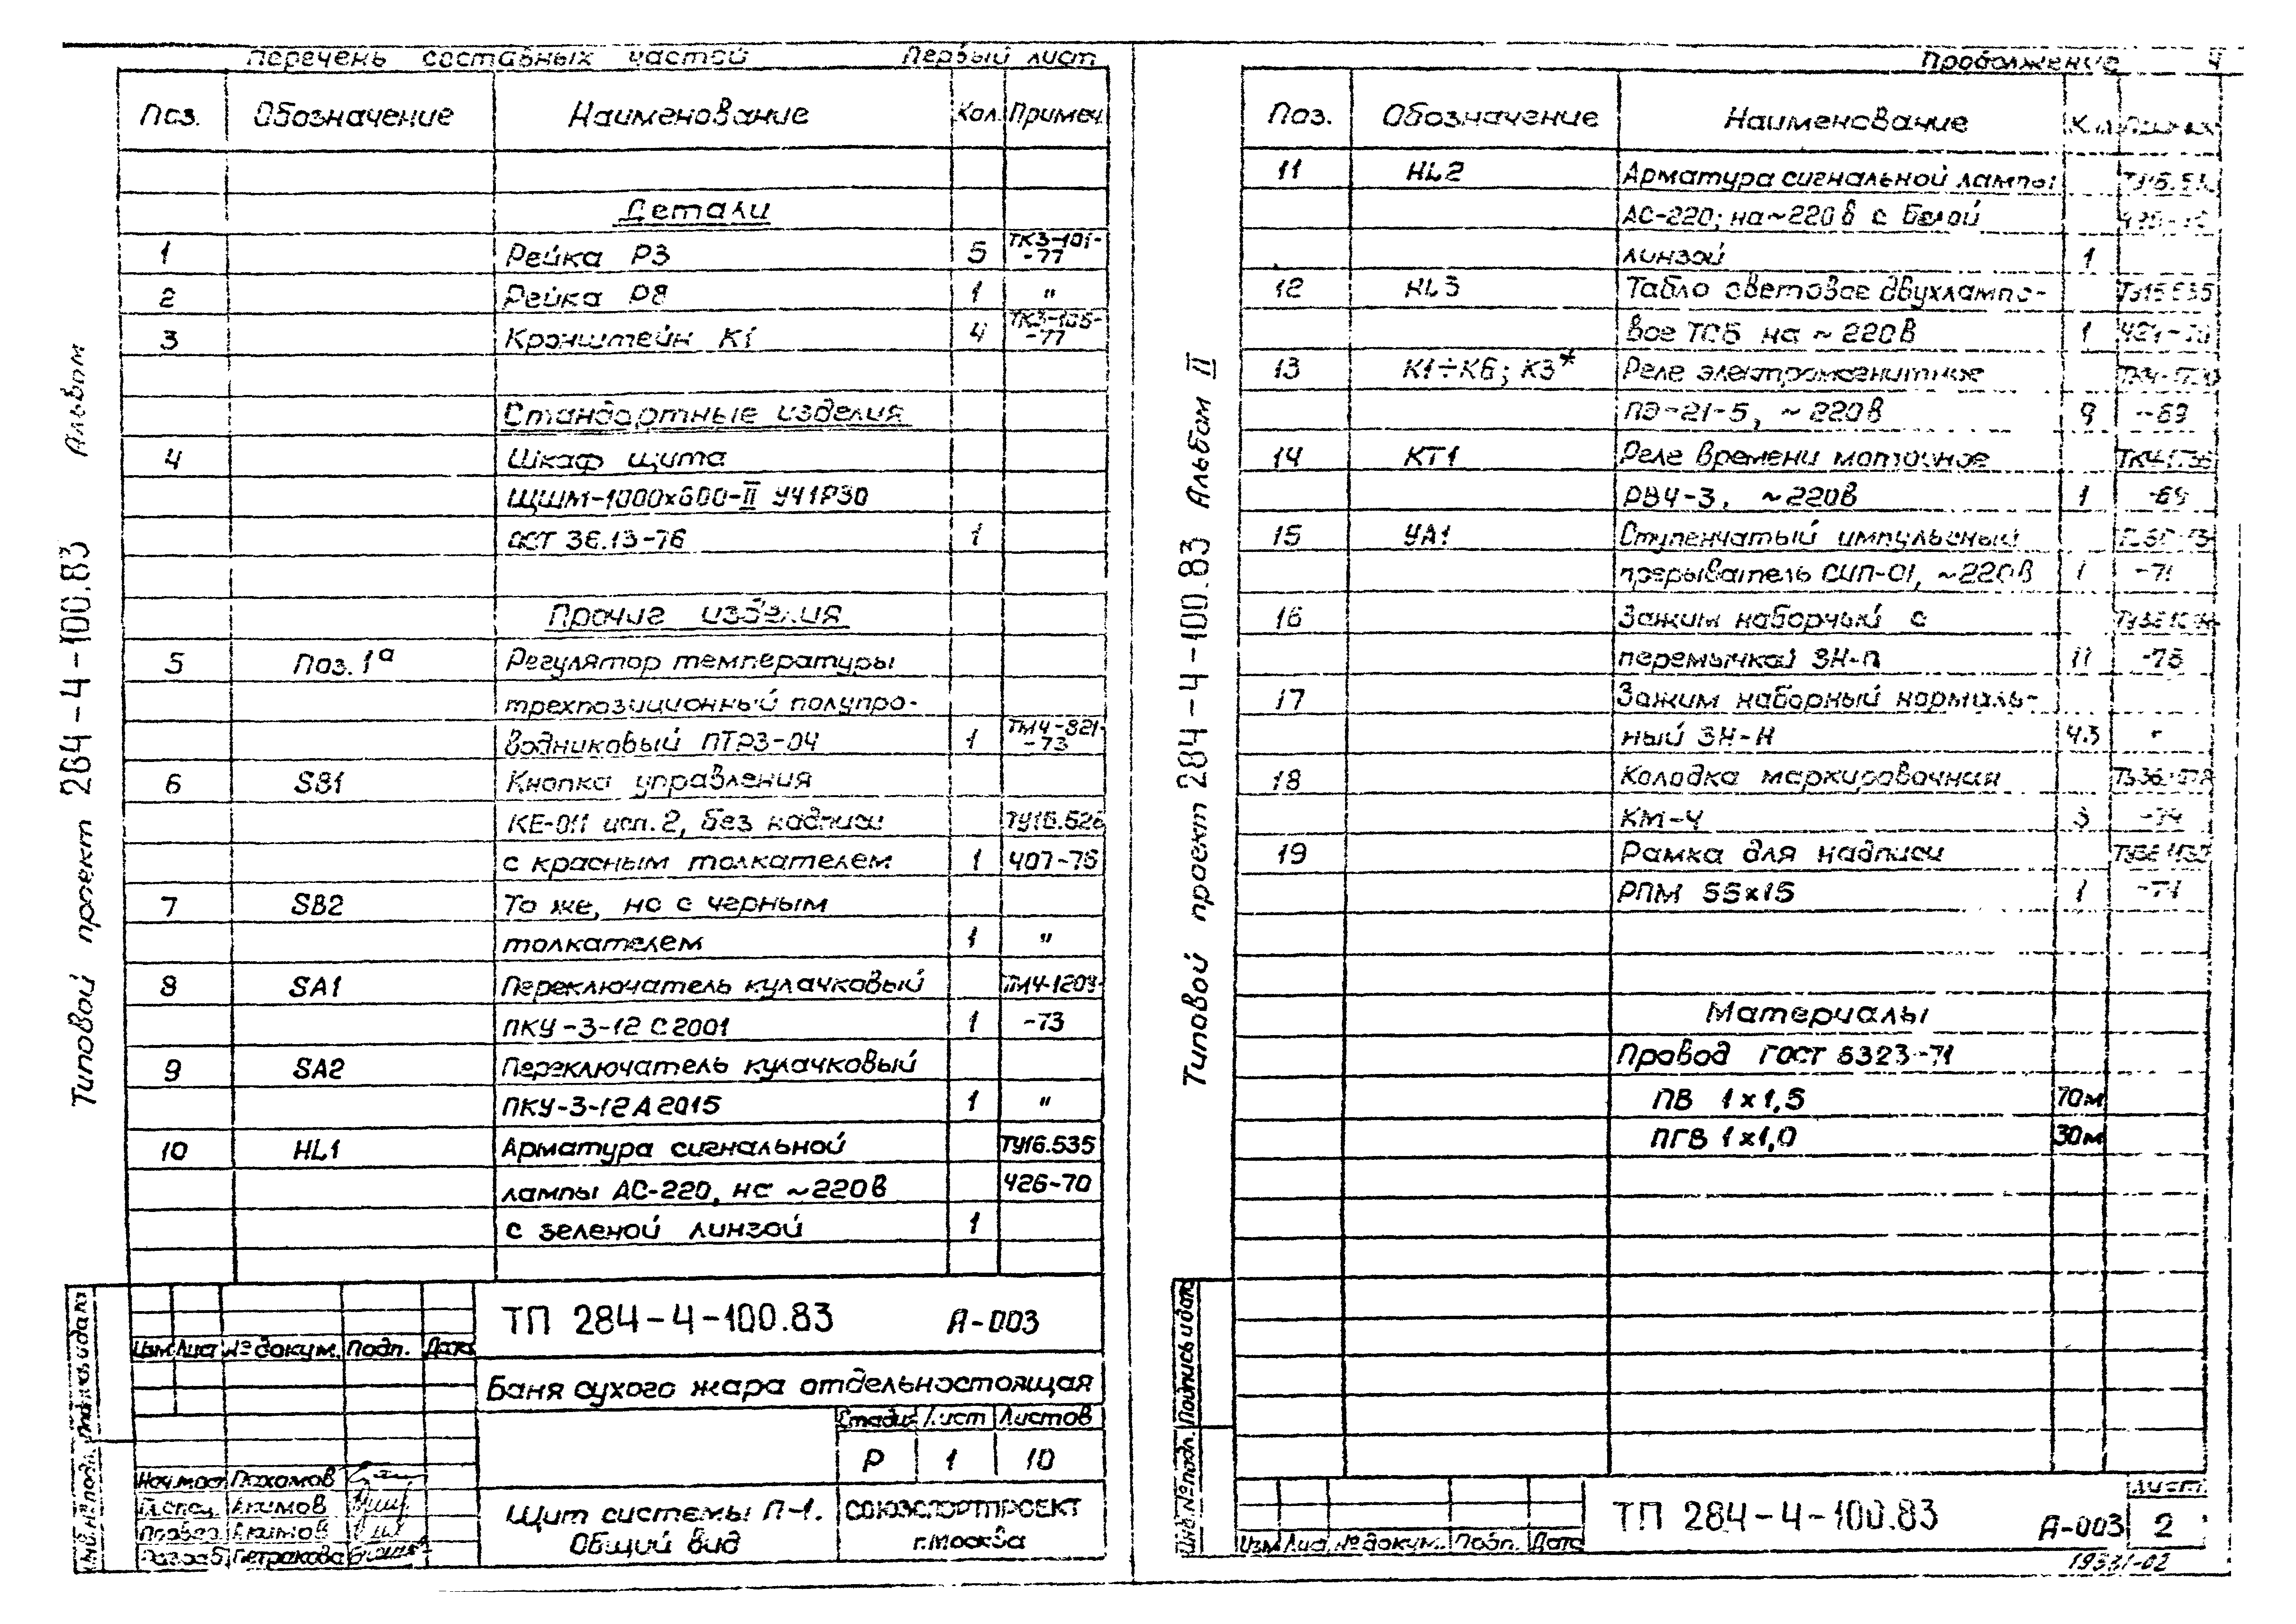 Перечень составных частей Первый лист
Поз. Обозначение Наименование Кол. Примеч.
Детали
1 Рейка Р3 5 ТК3-101-
-77
2 Рейка Р8 1 "
3 Кронштейн К1 4 ТК3-105-
-77
Стандартные изделия
4 Шкаф щита
ЩШМ-1000х600-II УЧ1Р30
ОСТ 36.13-76 1
Прочие изделия
5 Поз. 1а Регулятор температуры
трехпозиционный полупро-
водниковый ПТР3-04 1 ТМ4-821-
-73
6 SB1 Кнопка управления
КЕ-011 исп. 2, без надписи ТУ16.526
с красным толкателем 1 407-76
7 SB2 То же, но с черным
толкателем 1 "
8 SA1 Переключатель кулачковый ТМ4-1209-
ПКУ-3-12 С2001 1 -73
9 SA2 Переключатель кулачковый
ПКУ-3-12А2015 1 "
10 HL1 Арматура сигнальной ТУ16.535
лампы АС-220, на ~220в 426-70
с зеленой линзой 1
ТП 284-4-100.83 А-003
Изм Лист № докум. Подп. Дата
Баня сухого жара отдельностоящая
Стадия Лист Листов
Р 1 10
Нач.маст Пахомов
Гл.спец. Акимов
Провер. Акимов
Разраб. Петракова
Щит системы П-1.
Общий вид
СОЮЗСПОРТПРОЕКТ
г.Москва
Типовой проект 284-4-100.83 Альбом
Инв. № подл. Подпись и дата
Продолжение 4
Поз. Обозначение Наименование
11 HL2 Арматура сигнальной лампы
АС-220; на ~220в с белой
линзой 1
12 HL3 Табло световое двухлампо-
вое ТСБ на ~220в 1
13 К1÷К6; К3* Реле электромагнитное
ПЭ-21-5, ~220в 9 -69
14 КТ1 Реле времени моторное
РВ4-3, ~220в 1 -69
15 УА1 Ступенчатый импульсный
прерыватель СИП-01, ~220в 1 -71
16 Зажим наборный с
перемычкой ЗН-П 11 -75
17 Зажим наборный нормаль-
ный ЗН-Н 43 "
18 Колодка маркировочная
КМ-4 3 -74
19 Рамка для надписи
РПМ 55х15 1 -71
Материалы
Провод ГОСТ 6323-71
ПВ 1х1,5 70м
ПГВ 1х1,0 30м
Типовой проект 284-4-100.83 Альбом II
Инв. № подл. Подпись и дата
Изм Лист № докум. Подп. Дата
ТП 284-4-100.83 А-003
Лист
2
19331-02